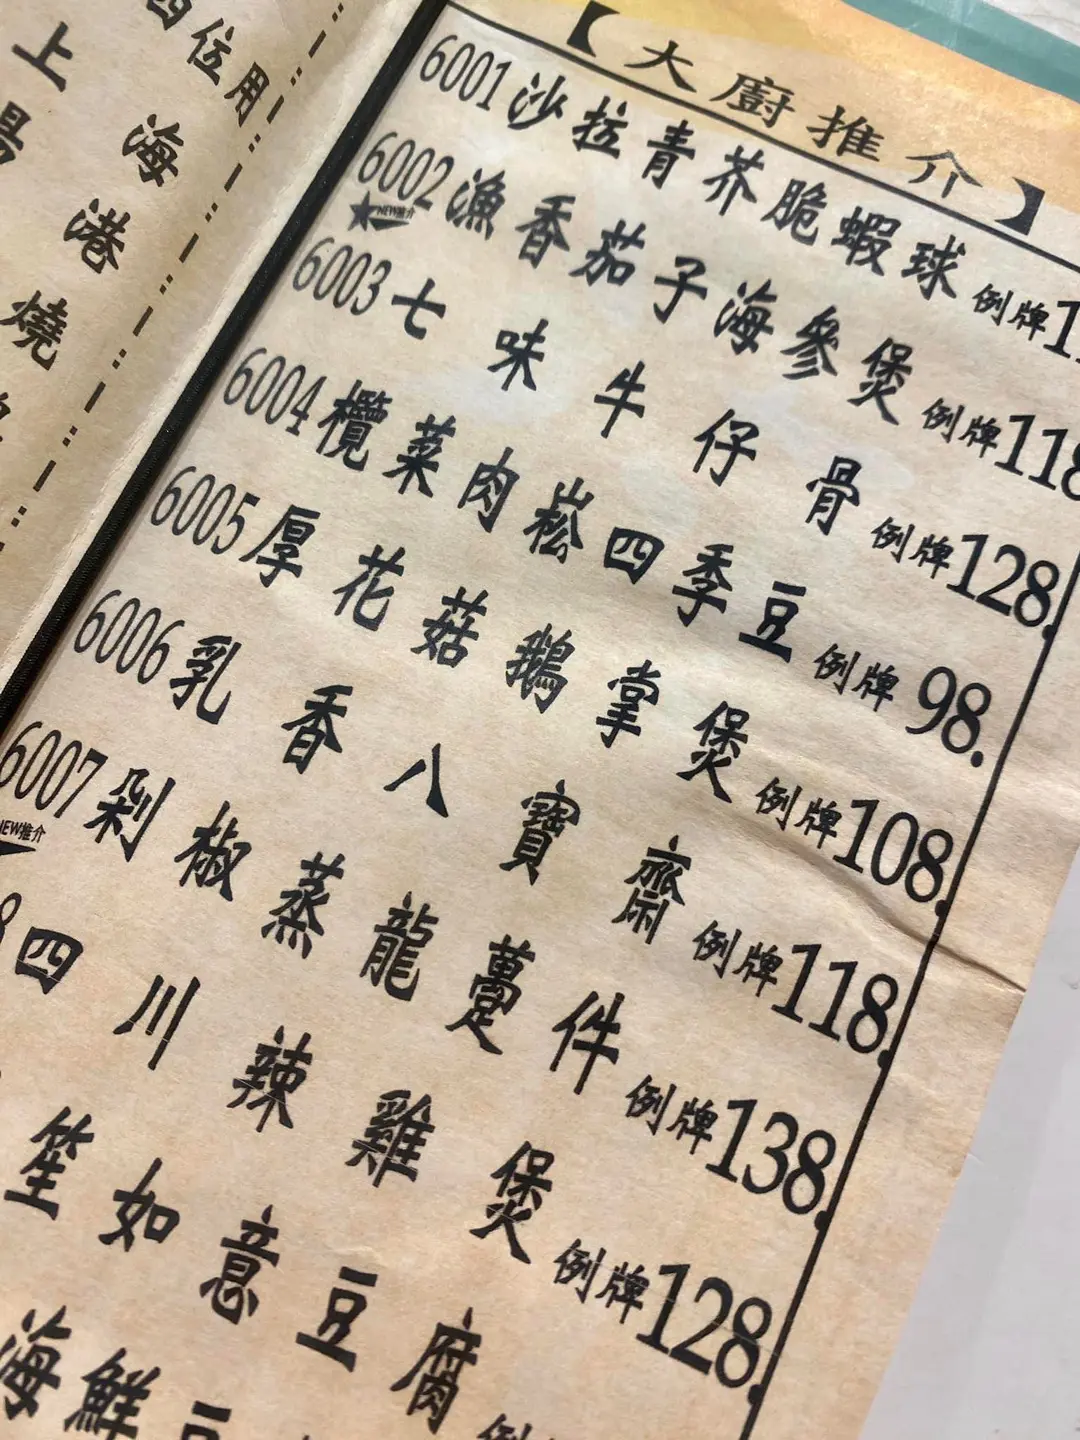 四位用
上海港燒
湯
【大廚推介】
6001 沙拉青芥脆蝦球 例牌1
6002 漁香茄子海參煲 例牌118
NEW推介
6003 七味牛仔骨 例牌128.
6004 欖菜肉崧四季豆 例牌98.
6005 厚花菇鵝掌煲 例牌108.
6006 乳香八寶齋 例牌118.
6007 剁椒蒸龍躉件 例牌138.
NEW推介
8 四川辣雞煲 例牌128.
笙如意豆腐 例
海鮮豆